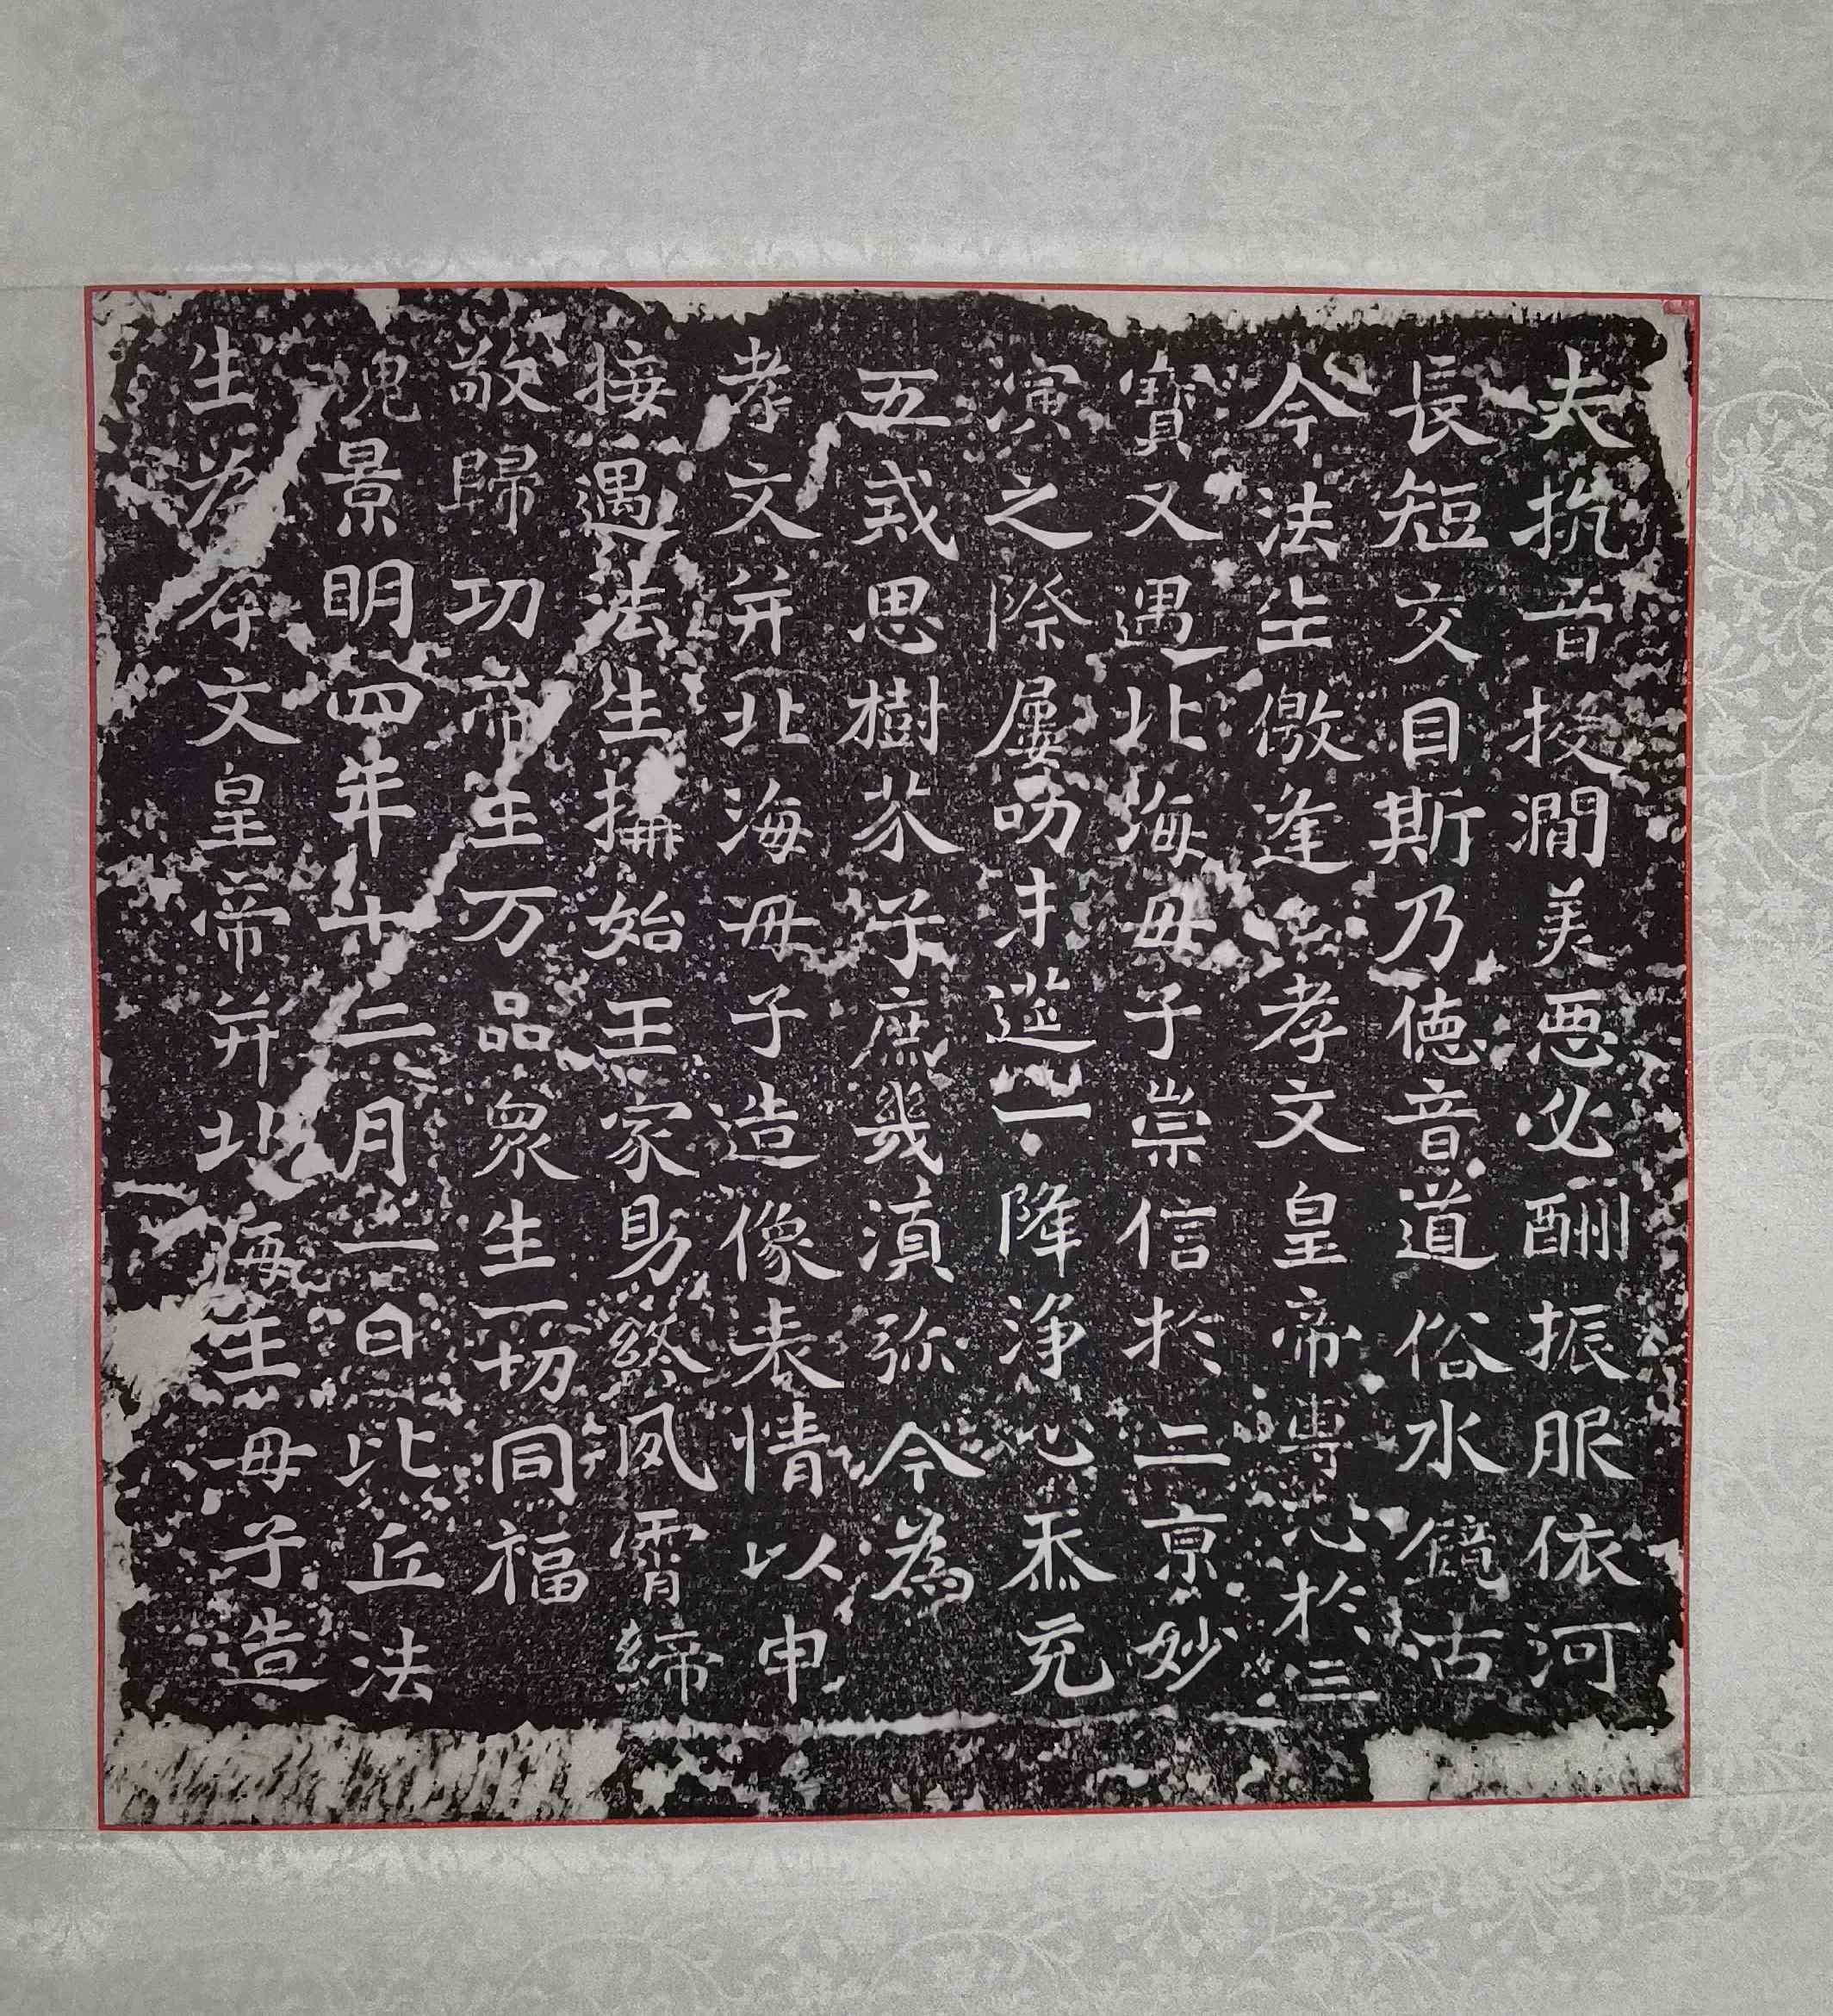 夫抗音投澗美惡必酬振服依河
長短交目斯乃德音道俗水鏡古
今法生儌逢孝文皇帝專心於三
寶又遇北海母子崇信於二京妙
演之際屢叨末筵一降淨心忝充
五戒思樹芥子庶幾須弥今為
孝文并北海母子造像表情以申
接遇法生搆始王家助終夙霄締
敬歸功帝主万品眾生一切同福
魏景明四年十二月一日比丘法
生為孝文皇帝并北海王母子造